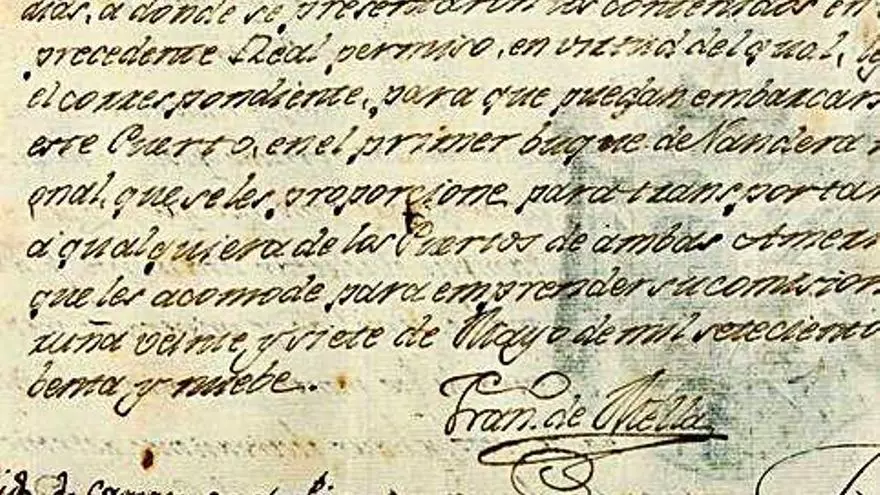 dias, a donde se presentaron los contenidos en
precedente Real permiso, en virtud del qual,
el correspondiente, para que puedan embarcar
este Puerto, en el primer buque de Vandera
onal, que se les proporcione para transportar
a qualquiera de los Puertos de ambas Ameri
que les acomode para emprender su comision
ruña veinte y siete de Mayo de mil setecient
benta y nuebe.
Fran. de Mella